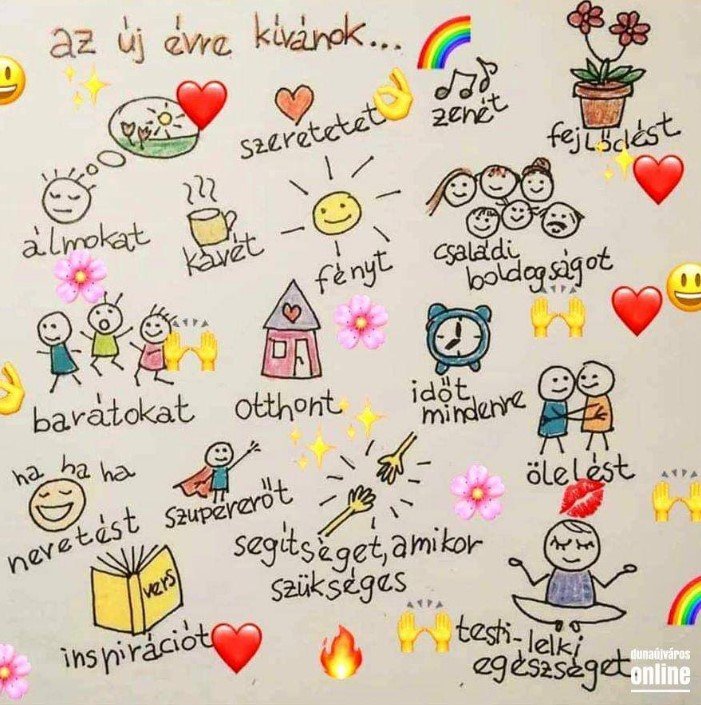 az új évre kívánok...
szeretetet
zenét
fejlődést
álmokat
kávét
fényt
családi
boldogságot
barátokat
otthont
időt
mindenre
ölelést
ha ha ha
nevetést
szupererőt
segítséget, amikor
szükséges
vers
inspirációt
testi-lelki
egészséget
dunaújváros
online